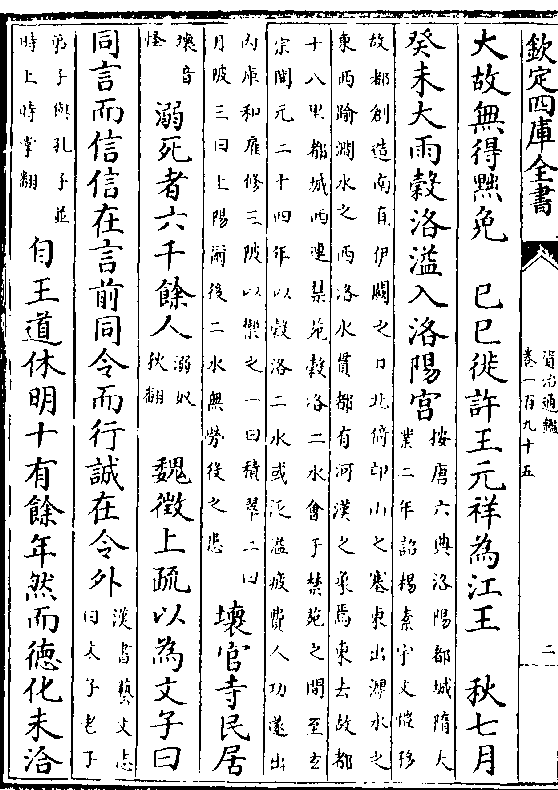 欽定四庫全書
資治通鑑
卷一百九十五
二
大故無得黜免　己巳徙許王元祥為江王　秋七月
癸未大雨穀洛溢入洛陽宮
按唐六典洛陽都城隋大
業二年詔楊素宇文愷移
故都創造南直伊闕之口北倚邙山之塞東出瀍水之
東西踰澗水之西洛水貫都有河漢之象焉東去故都
十八里都城西連禁苑穀洛二水會于禁苑之間至玄
宗開元二十四年以穀洛二水或泛溢疲費人功遂出
内庫和雇修三陂以禦之一曰積翠二曰
月陂三曰上陽爾後二水無勞役之患
壞官寺民居
壞音
怪
溺死者六千餘人
溺奴
狄翻
魏徵上疏以為文子曰
同言而信信在言前同令而行誠在令外
漢書藝文志
曰文子老子
弟子與孔子並
時上時掌翻
自王道休明十有餘年然而德化未洽